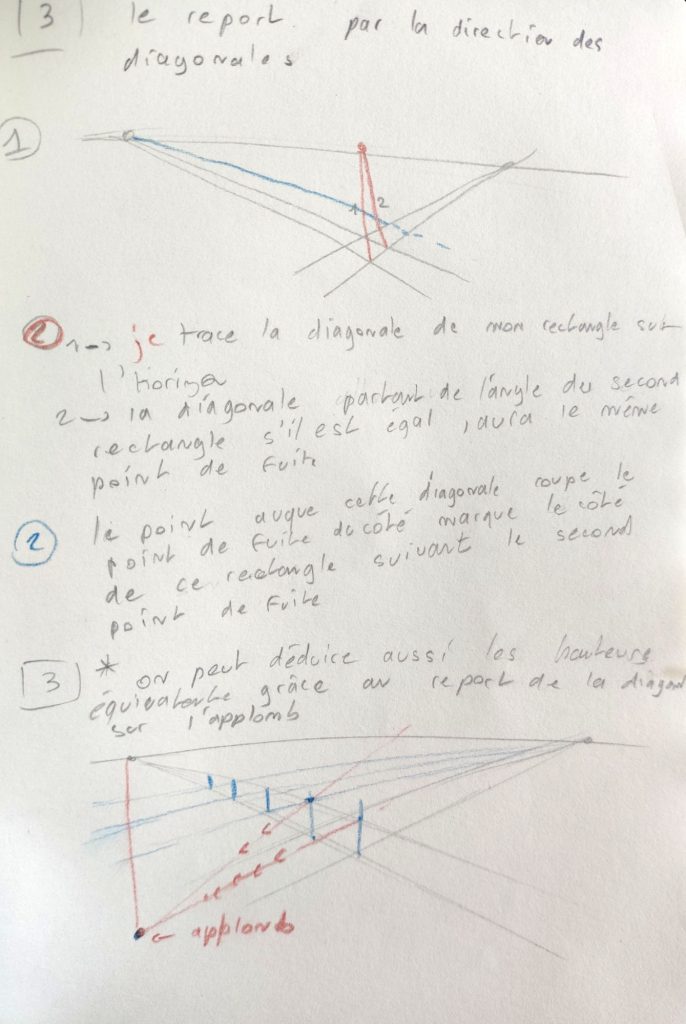 3 le report par la direction des
diagonales
1
1 2
2 1 → je trace la diagonale de mon rectangle sur
l'horizon
2 → la diagonale partant de l'angle du second
rectangle s'il est égal, aura le même
point de fuite
2 le point auque cette diagonale coupe le
point de fuite du côté marque le côté
de ce rectangle suivant le second
point de fuite
3 * on peut déduire aussi les hauteurs
équivalente grâce au report de la diagonal
sur l'applomb
← applomb